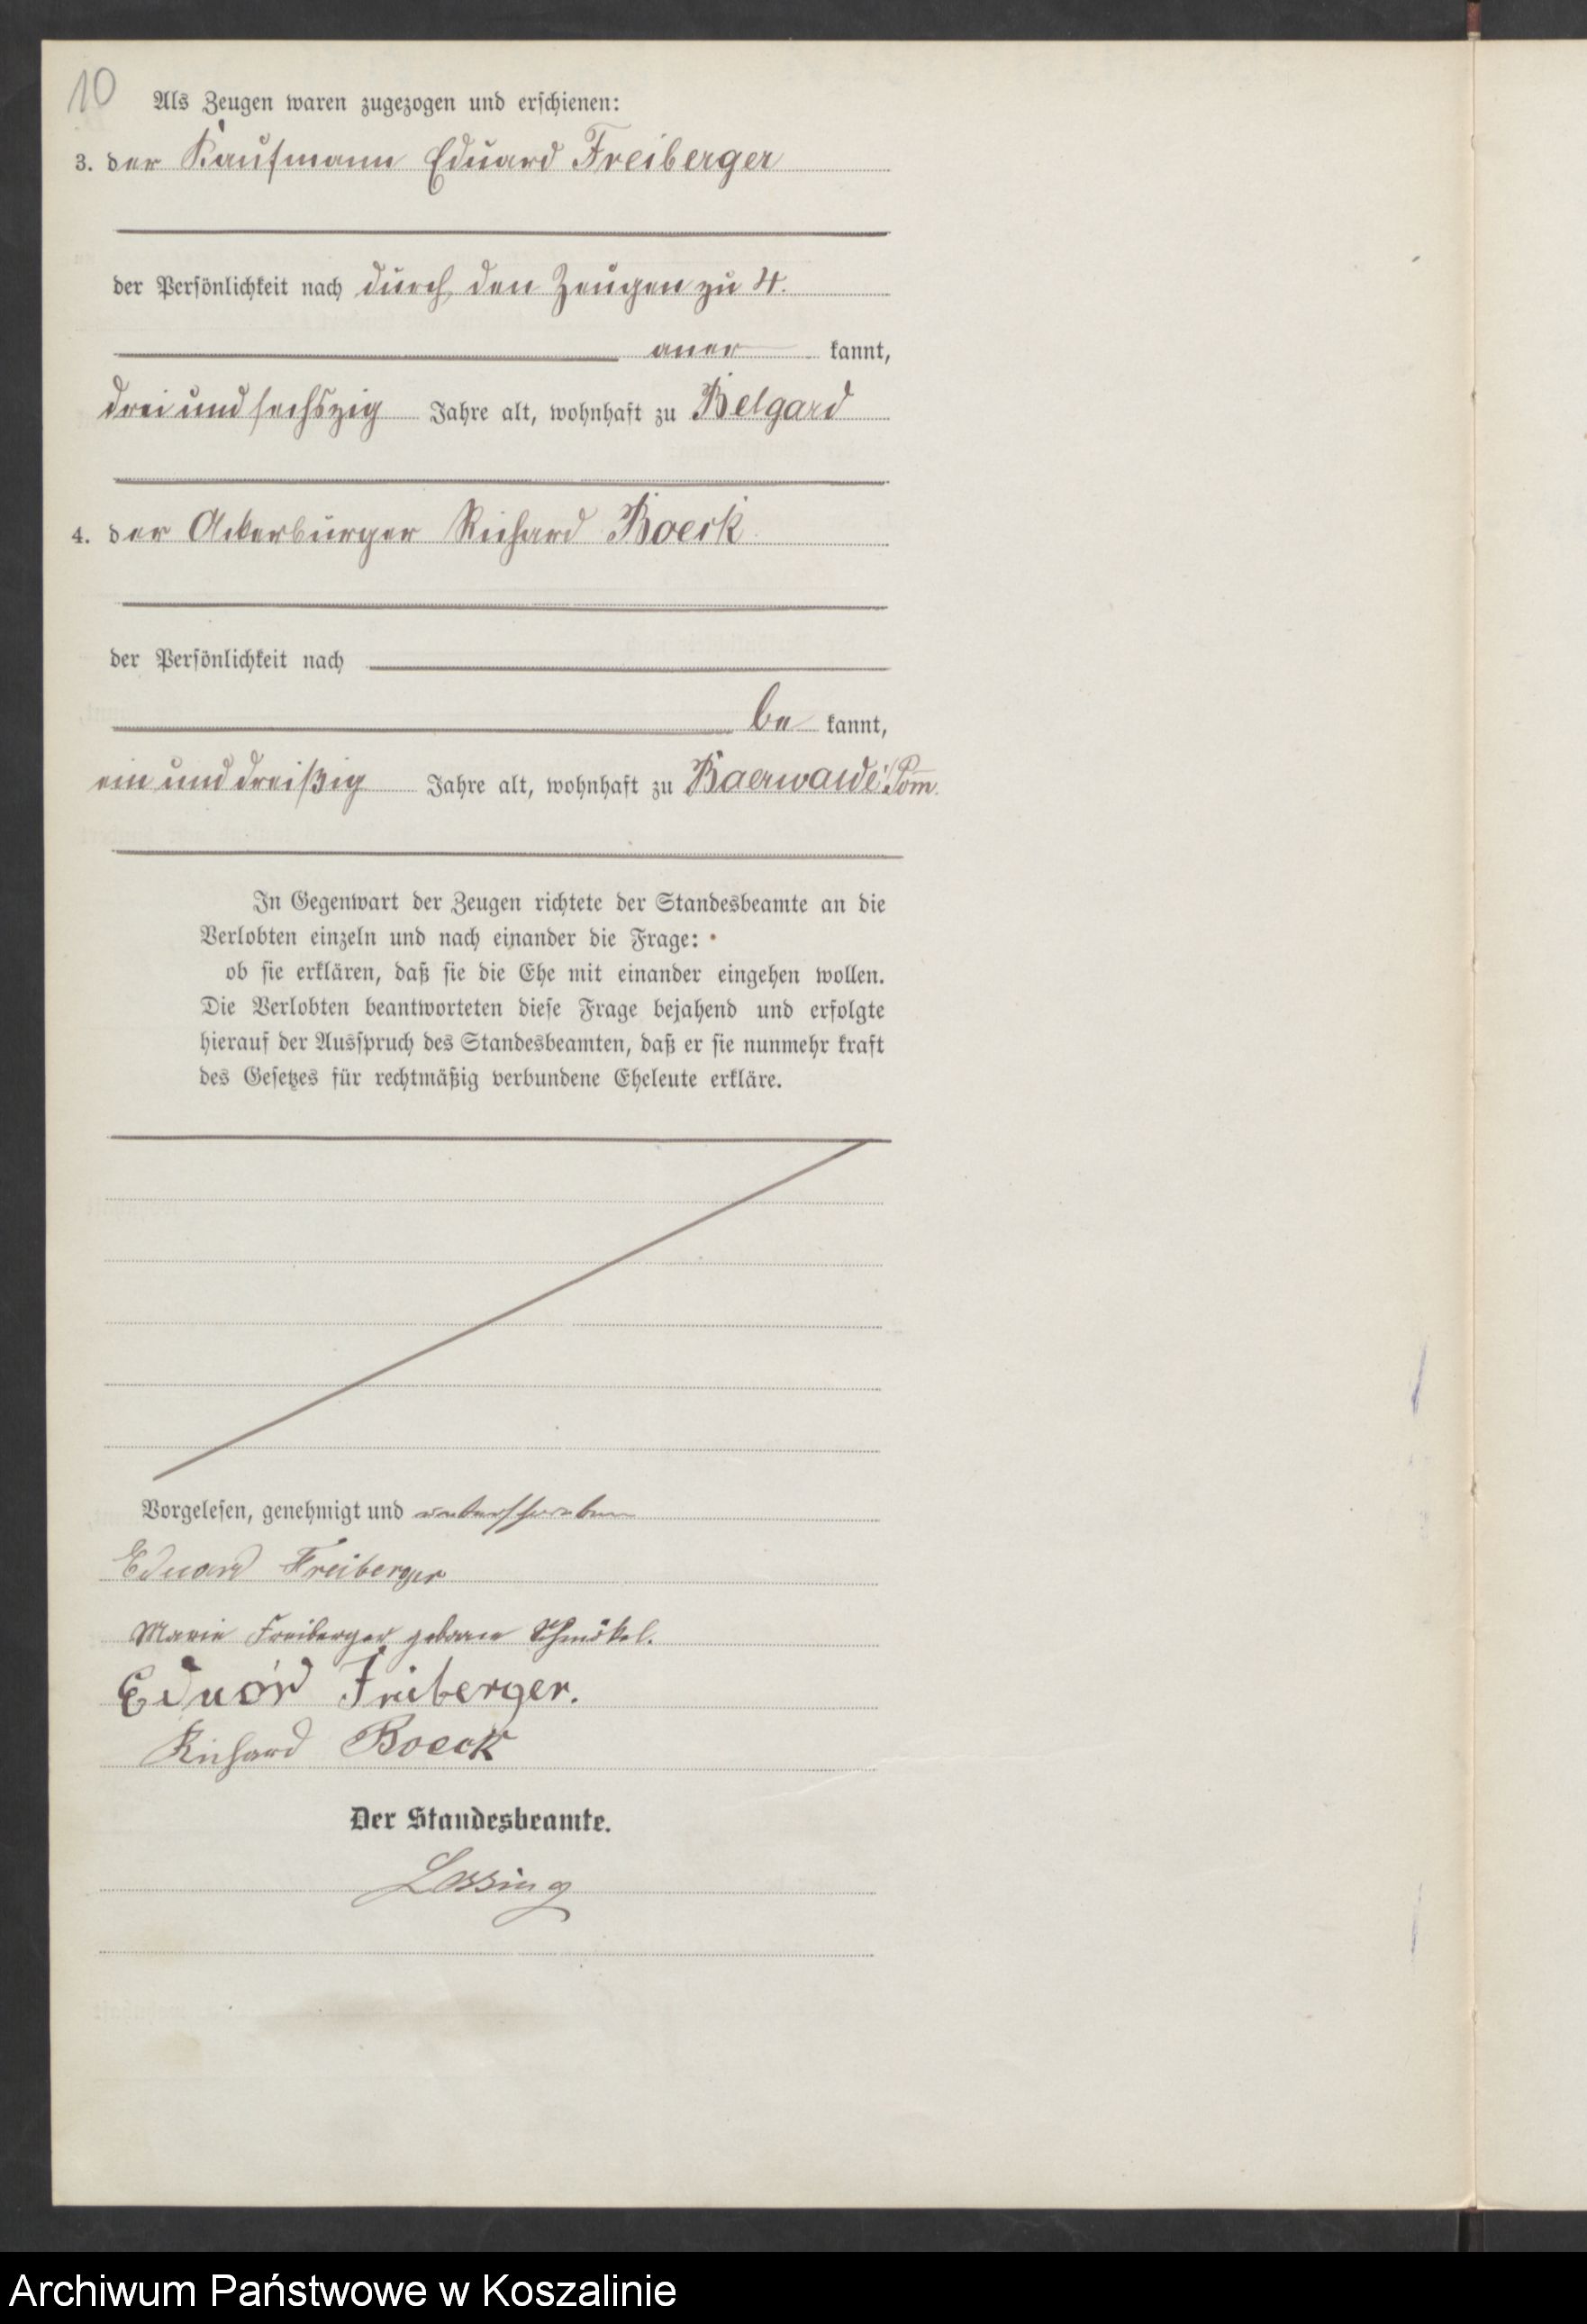 10
Als Zeugen waren zugezogen und erschienen:
3. der Kaufmann Eduard Freiberger
der Persönlichkeit nach durch den Zeugen zu 4.
aner kannt,
drei und sechszig Jahre alt, wohnhaft zu Belgard
4. der Ackerbürger Richard Boeck
der Persönlichkeit nach
be kannt,
ein und dreißig Jahre alt, wohnhaft zu Baerwalde Pom.
In Gegenwart der Zeugen richtete der Standesbeamte an die
Verlobten einzeln und nach einander die Frage:
ob sie erklären, daß sie die Ehe mit einander eingehen wollen.
Die Verlobten beantworteten diese Frage bejahend und erfolgte
hierauf der Ausspruch des Standesbeamten, daß er sie nunmehr kraft
des Gesetzes für rechtmäßig verbundene Eheleute erkläre.
Vorgelesen, genehmigt und unterschrieben
Eduard Freiberger
Marie Freiberger geborne Schmökel.
Eduard Freiberger.
Richard Boeck
Der Standesbeamte.
Lessing
Archiwum Państwowe w Koszalinie